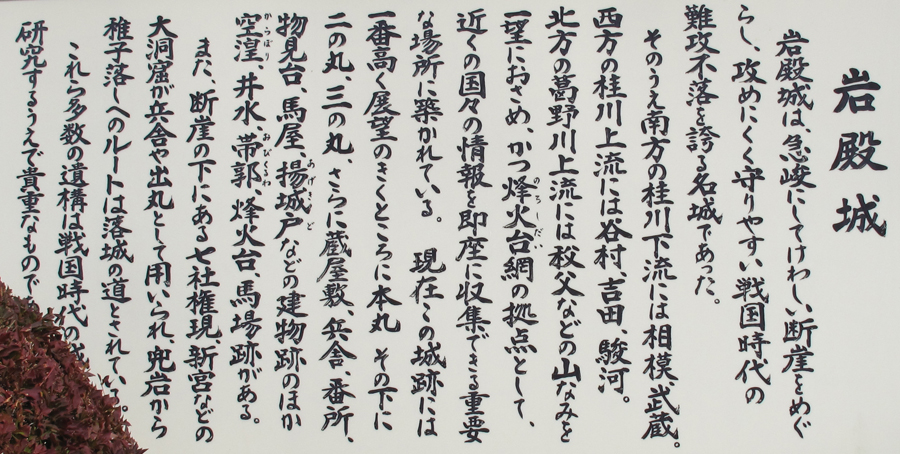 岩殿城
岩殿城は、急峻にしてけわしい断崖をめぐ
らし、攻めにくく守りやすい戦国時代の
難攻不落を誇る名城であった。
そのうえ南方の桂川下流には相模、武蔵。
西方の桂川上流には谷村、吉田、駿河。
北方の葛野川上流には秩父などの山なみを
一望におさめ、かつ烽火台網の拠点として、
近くの国々の情報を即座に収集できる重要
な場所に築かれている。 現在この城跡には
一番高く展望のきくところに本丸 その下に
二の丸、三の丸、さらに蔵屋敷、兵舎、番所、
物見台、馬屋、揚城戸などの建物跡のほか
空湟、井水、帯郭、烽火台、馬場跡がある。
また、断崖の下にある七社権現、新宮などの
大洞窟が兵舎や出丸として用いられ、兜岩から
稚子落しへのルートは落城の道とされている。
これら多数の遺構は戦国時代の
研究するうえで貴重なもので